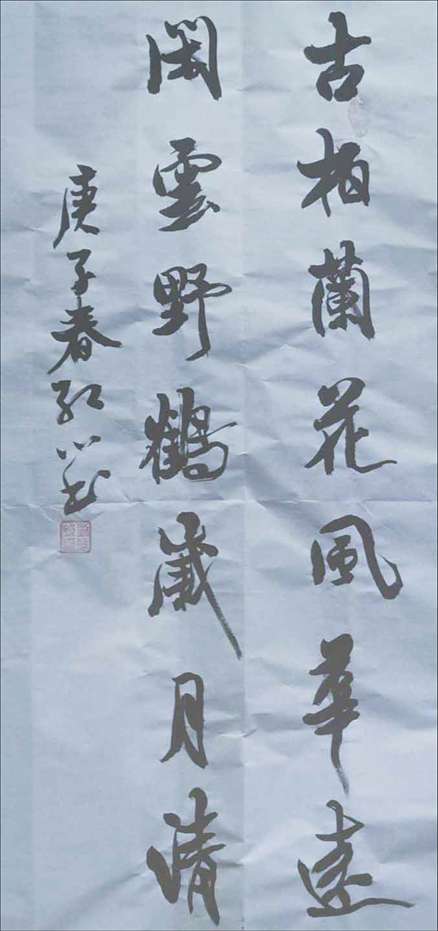 古柏蘭花風華遠
閑雲野鶴歲月清
庚子春